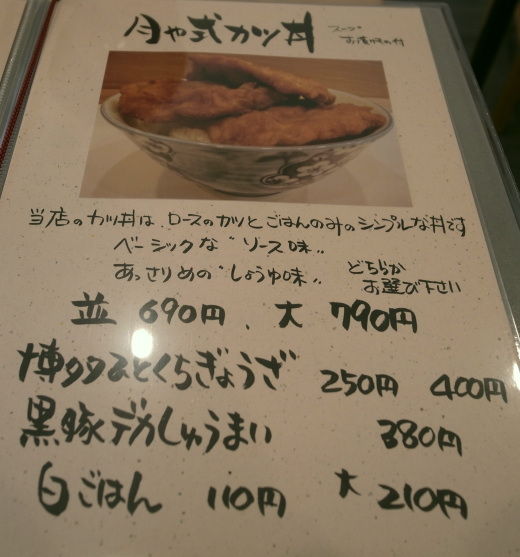 月や式カツ丼 スープ
お漬物付
当店のカツ丼は、ロースのカツとごはんのみのシンプルな丼です
ベーシックな〝ソース味〟
あっさりめの〝しょうゆ味〟 どちらか
お選び下さい
並 690円、大 790円
博多ひとくちぎょうざ 250円 400円
黒豚デカしゅうまい 380円
白ごはん 110円 大 210円